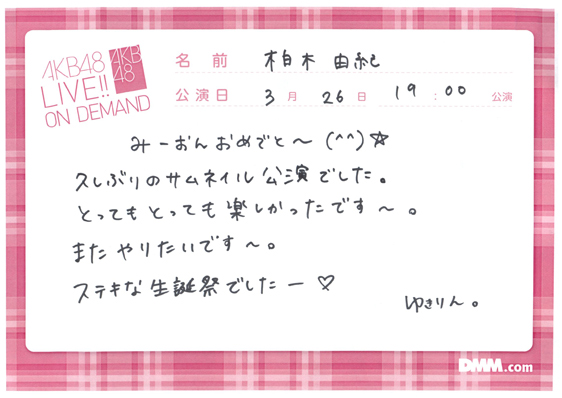 AKB48
LIVE!!
ON DEMAND
AKB
48
名前 柏木 由紀
公演日 3月 26日 19:00 公演
みーおんおめでと〜(^^)☆
久しぶりのサムネイル公演でした。
とってもとっても楽しかったです〜。
またやりたいです〜。
ステキな生誕祭でしたー♡
ゆきりん。
DMM.com